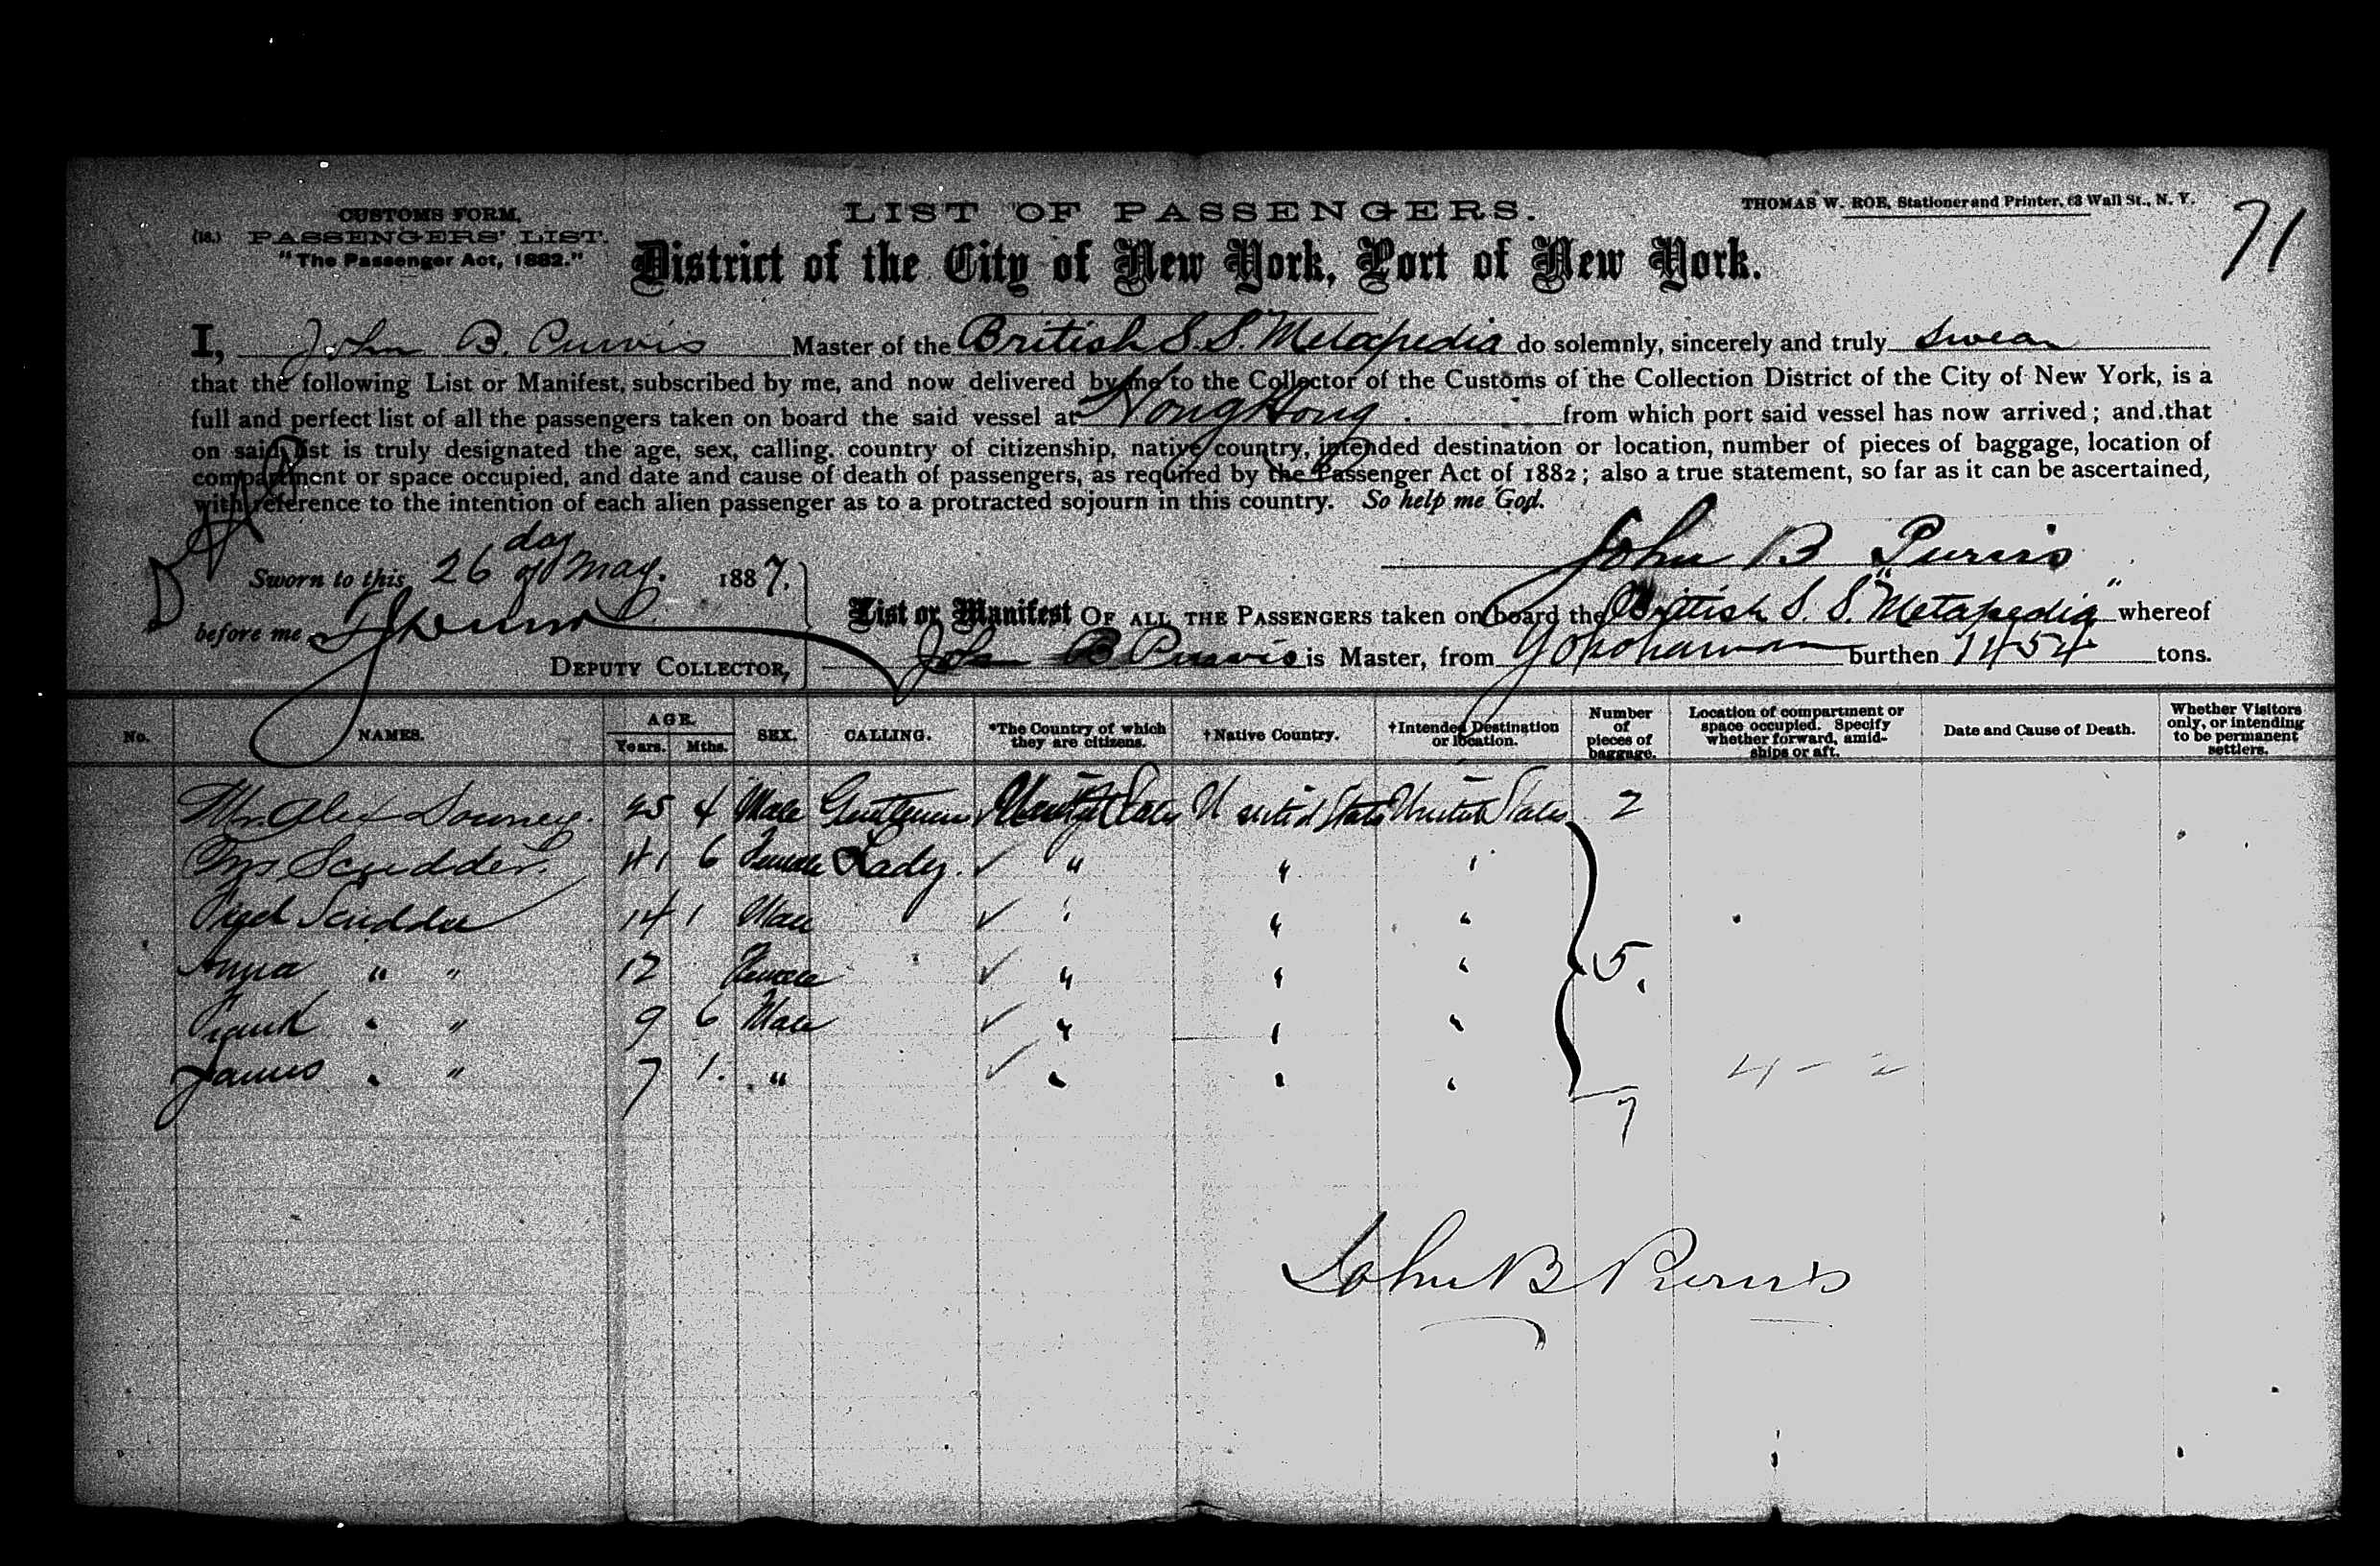 CUSTOMS FORM.
(18.) PASSENGERS' LIST.
"The Passenger Act, 1882."
LIST OF PASSENGERS.
THOMAS W. ROE, Stationer and Printer, 68 Wall St., N. Y.
71
District of the City of New York, Port of New York.
I, John B. Purvis Master of the British S.S. Metapedia do solemnly, sincerely and truly swear
that the following List or Manifest, subscribed by me, and now delivered by me to the Collector of the Customs of the Collection District of the City of New York, is a
full and perfect list of all the passengers taken on board the said vessel at Hong Hong from which port said vessel has now arrived; and that
on said list is truly designated the age, sex, calling, country of citizenship, native country, intended destination or location, number of pieces of baggage, location of
compartment or space occupied, and date and cause of death of passengers, as required by the Passenger Act of 1882; also a true statement, so far as it can be ascertained,
with reference to the intention of each alien passenger as to a protracted sojourn in this country. So help me God.
John B Purvis
Sworn to this 26 day of May. 1887.
before me
DEPUTY COLLECTOR,
List or Manifest OF ALL THE PASSENGERS taken on board the British S. S. "Metapedia" whereof
John B Purvis is Master, from Yokohama burthen 1454 tons.
No. NAMES. AGE. Years. Mths. SEX. CALLING. *The Country of which they are citizens. †Native Country. †Intended Destination or location. Number of pieces of baggage. Location of compartment or space occupied. Specify whether forward, amidships or aft. Date and Cause of Death. Whether Visitors only, or intending to be permanent settlers.
Mr. Alex Downey. 25 4 Male Gentleman United States United States United States 2
Mrs Scudder. 41 6 Female Lady. " " "
Scudder 14 1 Male " " "
Anna " " 12 Female " " " 5.
Frank " " 9 6 Male " " "
James " " 7 1. " " " "
4 - 2
7
John B Purvis